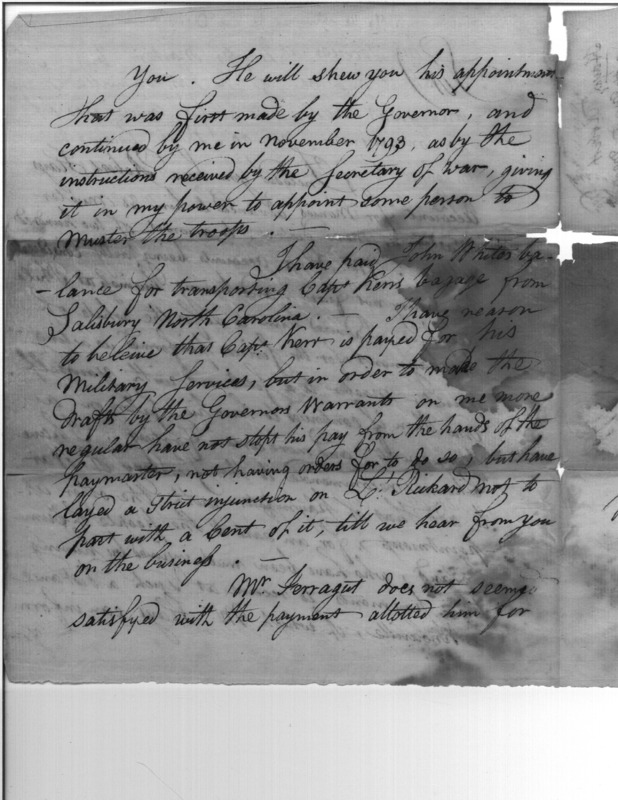 You. He will shew you his appointment
that was first made by the Governor, and
continued by me in November 1793, as by the
instructions received by the Secretary of war, giving
it in my power to appoint some person to
Muster the troops. —
I have paid John Whites ba-
-lance for transporting Capt Kerrs bagage from
Salisbury North Carolina. — I have reason
to beleive that Capt. Kerr is payed for his
Military Services, but in order to make the
drafts by the Governors Warrants on me more
regular have not stopt his pay from the hands of the
paymaster, not having orders for to do so, but have
layed a strict injunction on Lt. Rickard not to
part with a Cent of it, till we hear from you
on the business. —
Mr. Ferragut does not seem
satisfyed with the payment allotted him for